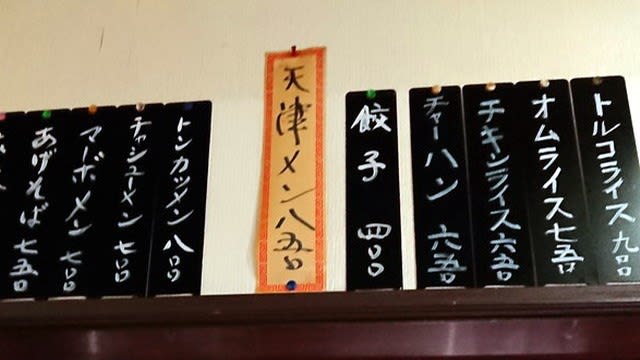 トルコライス 九〇〇
オムライス 七五〇
チキンライス 六五〇
チャーハン 六五〇
餃子 四〇〇
天津メン 八五〇
トンカツメン 八〇〇
チャシューメン 七〇〇
マーボメン 七〇〇
あげそば 七五〇